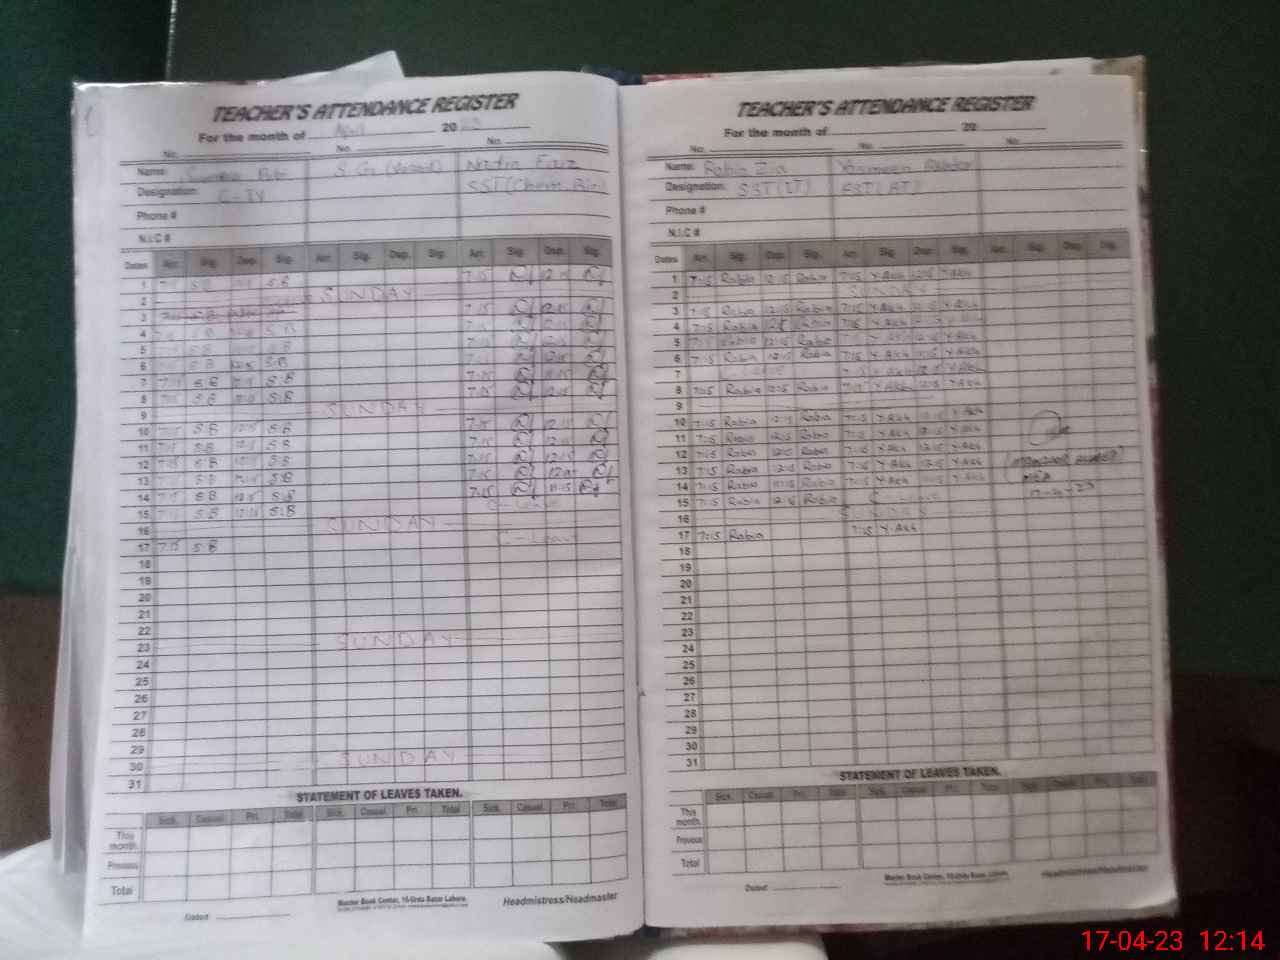 TEACHER'S ATTENDANCE REGISTER
For the month of April 20 23
No. No. No.
Name: Bibi S.G (Vacant) Nadia Faiz
Designation: C-IV SST (Chem. Bio)
Phone #
N.I.C #
Dates Arr. Sig. Dep. Sig. Arr. Sig. Dep. Sig. Arr. Sig. Dep. Sig.
1 7:15 S.B 12:15 S.B 7:15 12:15
2 SUNDAY
3 7:15 12:15
4 7:15 S.B S.B 7:15
5 7:15 S.B S.B 7:15
6 7:15 S.B 12:15 S.B 7:15 12:15
7 7:15 S.B 12:15 S.B 7:15 12:15
8 7:15 S.B 12:15 S.B 7:15 12:15
9 SUNDAY
10 7:15 S.B 12:15 S.B 7:15 12:15
11 7:15 S.B 12:15 S.B 7:15 12:15
12 7:15 S.B 12:15 S.B 7:15 12:15
13 7:15 S.B 12:15 S.B 7:15
14 7:15 S.B 12:15 S.B 7:15 11:15
15 7:15 S.B 12:15 S.B C-Leave
16 SUNDAY
17 7:15 S.B C-Leave
18
19
20
21
22
23 SUNDAY
24
25
26
27
28
29
30 SUNDAY
31
STATEMENT OF LEAVES TAKEN.
Sick. Casual. Pri. Total Sick. Casual. Pri. Total Sick. Casual. Pri. Total
This month.
Previous
Total
Dated
Master Book Center, 16-Urdu Bazar Lahore.
Headmistress/Headmaster
TEACHER'S ATTENDANCE REGISTER
For the month of 20
No. No. No.
Name: Rabia Zia Yasmeen Akhtar
Designation: SST (IT) EST (AT)
Phone #
N.I.C #
Dates Arr. Sig. Dep. Sig. Arr. Sig. Dep. Sig. Arr. Sig. Dep. Sig.
1 7:15 Rabia 12:15 Rabia 7:15 Y.Akh 12:15 Y.Akh
2 SUNDAY
3 7:15 Rabia 12:15 Rabia 7:15 Y.Akh 12:15 Y.Akh
4 7:15 Rabia 12:15 Rabia 7:15 Y.Akh 12:15 Y.Akh
5 7:15 Rabia 12:15 Rabia 7:15 Y.Akh 12:15 Y.Akh
6 7:15 Rabia 12:15 Rabia 7:15 Y.Akh 12:15 Y.Akh
7 C-Leave 7:15 Y.Akh 12:15 Y.Akh
8 7:15 Rabia 12:15 Rabia 7:15 Y.Akh 12:15 Y.Akh
9
10 7:15 Rabia 12:15 Rabia 7:15 Y.Akh 12:15 Y.Akh
11 7:15 Rabia 12:15 Rabia 7:15 Y.Akh 12:15 Y.Akh
12 7:15 Rabia 12:15 Rabia 7:15 Y.Akh 12:15 Y.Akh
13 7:15 Rabia 12:15 Rabia 7:15 Y.Akh 12:15 Y.Akh
14 7:15 Rabia 11:15 Rabia 7:15 Y.Akh 11:15 Y.Akh
MEA
15 7:15 Rabia 12:15 Rabia C
16 SUNDAY
17 7:15 Rabia 7:15 Y.Akh
18
19
20
21
22
23
24
25
26
27
28
29
30
31
STATEMENT OF LEAVES TAKEN.
Sick. Casual. Pri. Total Sick. Casual. Pri. Total Sick. Casual. Pri. Total
This month.
Previous
Total
Dated
Master Book Center, 16-Urdu Bazar Lahore.
Headmistress/Headmaster
17-04-23 12:14